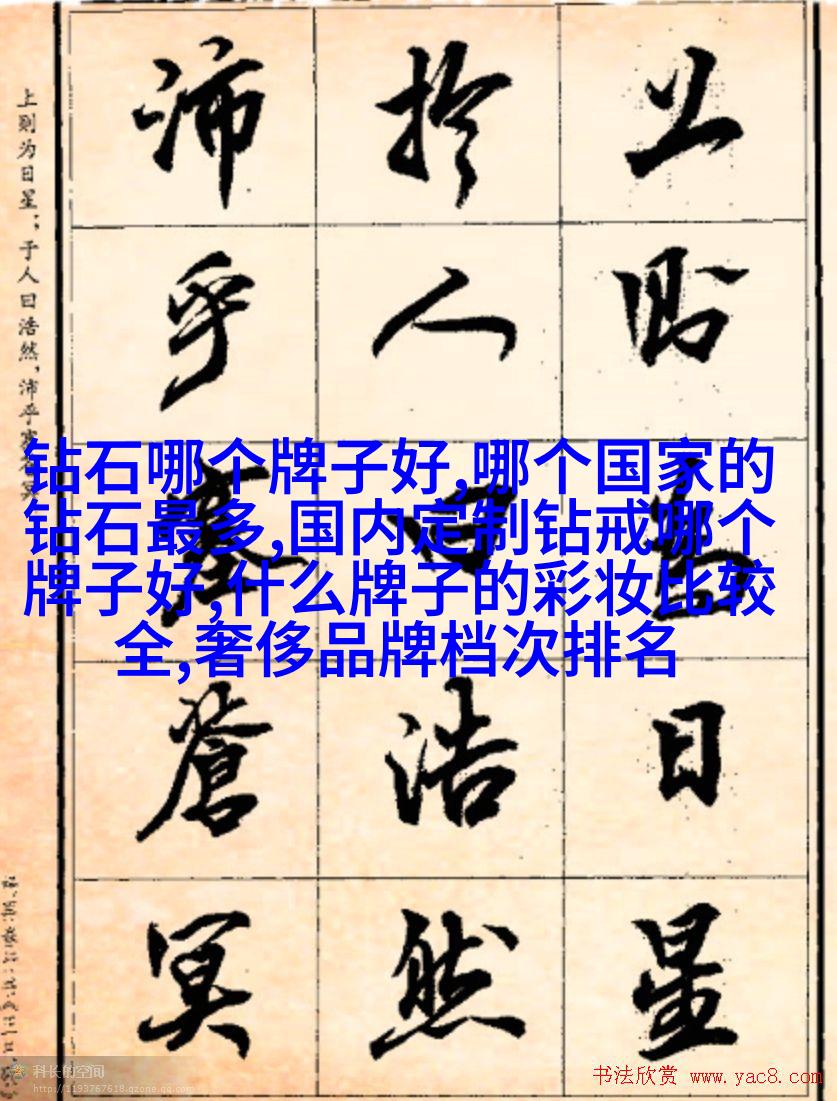 上則為日星
扵人曰浩然
沛乎塞蒼冥
上则为日星；于人曰浩然，沛乎塞苍冥
钻石哪个牌子好,哪个国家的
钻石最多,国内定制钻戒哪个
牌子好,什么牌子的彩妆比较
全,奢侈品牌档次排名
科长的空间
http://1193767618.qzone.qq.com
书法欣赏 www.yac8.com